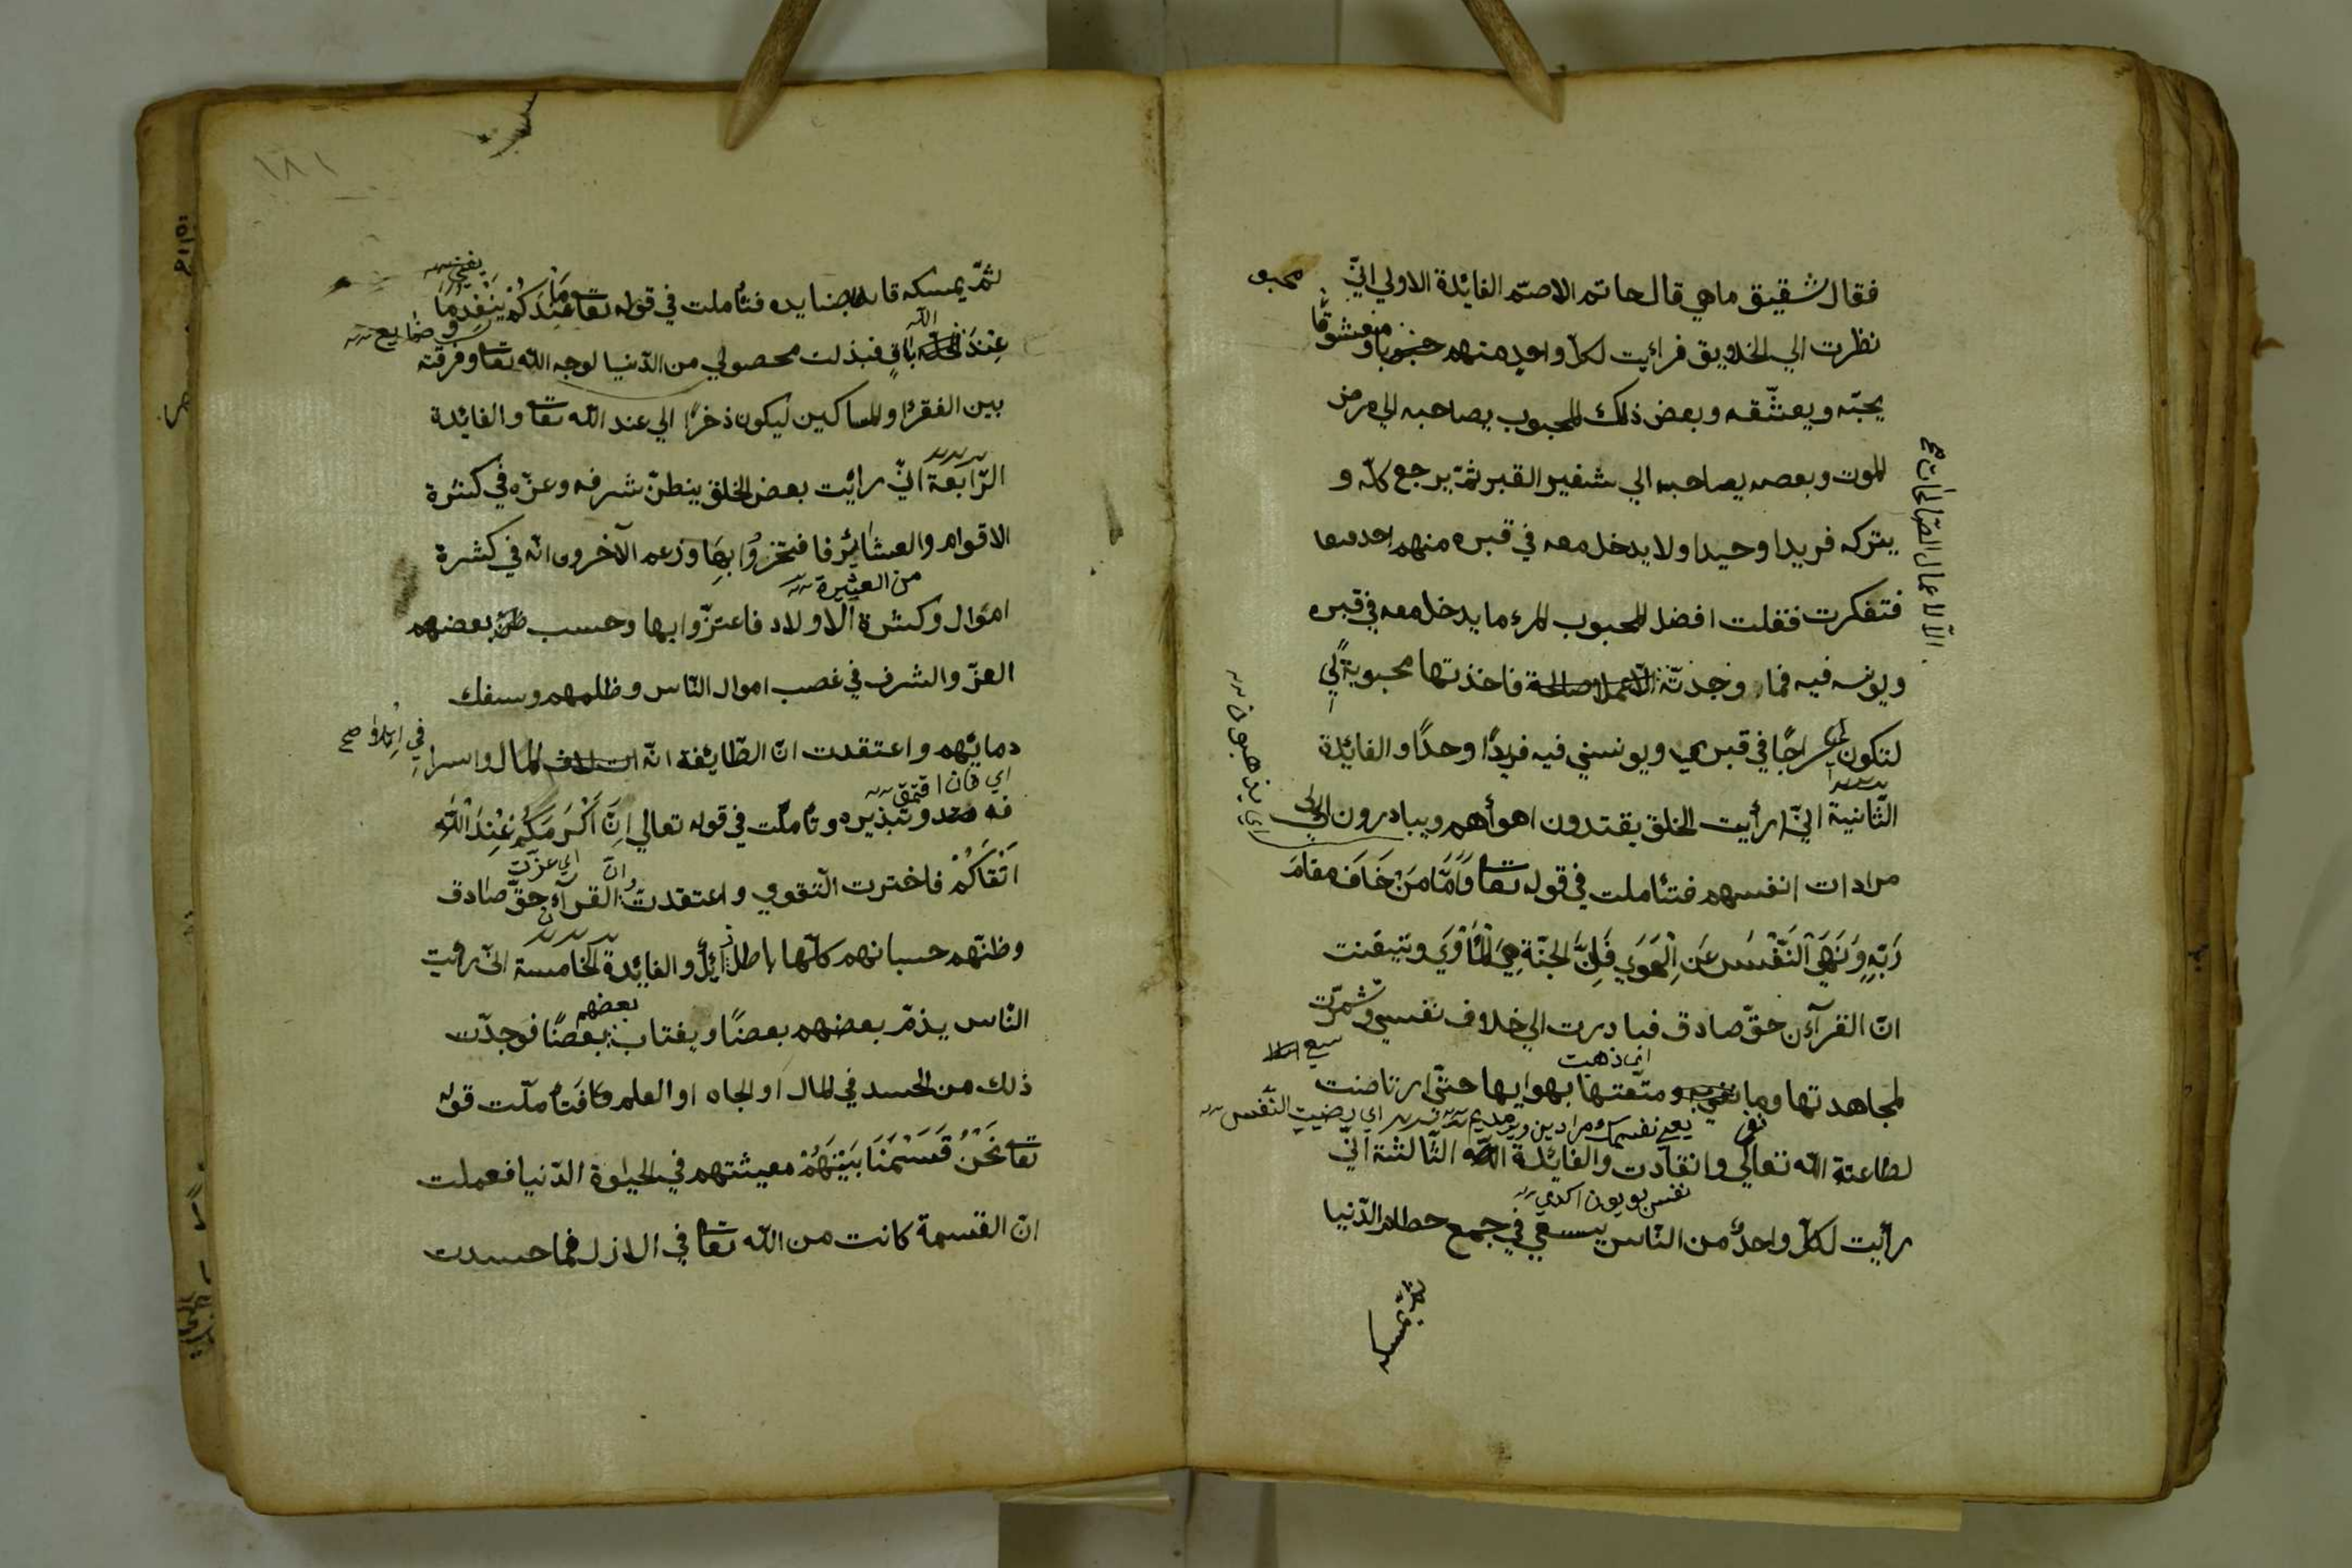 فقال شقيق ماهي قال حاتم الاصمّ الفائدة الاولي انّي
محبو
نظرت الي الخلايق فرايت لكلّ واحد منهم محبوبا ومعشوقًا
يحبّه ويعشّقه وبعض ذلك المحبوب يصاحبه الي مرض
الموت وبعضه يصاحبه الي شفير القبر ثمّ يرجع كلّه و
يتركه فريدا وحيدا ولا يدخل معه في قبره منهم احد
الّا الاعمال الصّالحات صح
فتفكرت فقلت افضل المحبوب المرء ما يدخل معه في قبره
ويونسه فيه فما وجدتّه الّا عمل الصالحة فاخذتها محبوبة لي
لتكون لي سراجًا في قبري ويونسني فيه فريدًا وحدًا والفائدة
الثّانية انّي رأيت الخلق يقتدون اهوأهم ويبادرون الي
اي يذهبون
مرادات انفسهم فتئاملت في قوله تعا وَاَمَّا مَنْ خَافَ مقامَ
رَبّهِ وَنَهَي النَّفْسَ عَنِ الْهَوَي فَاِنَّ الجنّة هِيَ الْمَأْوَي وتيقنت
انّ القرآن حقّ صادق فبادرت الي خلاف نفسي وشمرّت
اي ذهبت
لمجاهدتها وما متّعتها بهوايها حتّي ارتاضت
اي رضيت النّفس
لطاعة الله تعالي وانقادت والفائدة الثّالثة انّي
نفس بويون اكدي
رأيت لكلّ واحدٌ من النّاس يسعي في جمع حطام الدّنيا
ثمّ يمسكه
١٨١
ثمّ يمسكه قابضا يده فتأملت في قوله تعا مَا عِنْدَكُمْ يَنْفَدُ وَمَا
يفني
ضايع
الله
عِنْدَ الله بَاقٍ فبذلت محصولي من الدّنيا لوجه الله تعا وفرقته
بين الفقرا والمساكين ليكون ذخرًا لي عند الله تعا والفائدة
الرّابعة انّي رائيت بعض الخلق ينظنّ شرفه وعزّه في كثرة
الاقوام والعشائر فافتخروا بها وزعم الآخرون انّه في كثرة
من العشيرة
اموال وكثرة الاولاد فاعتزّوا بها وحسب ظنّ بعضهم
العزّ والشرف في غصب اموال النّاس وظلمهم وسفك
دمائهم واعتقدت انّ الطّائفة انّه اتلاف المال واسرا
في اتلاف صح
فه وتبذيره وتأملت في قوله تعالي اِنَّ اَكْرَمَكُمْ عِنْدَ اللّٰهِ
اي عزّت
اَتْقَاكُمْ فاخترت التّقوي واعتقدت وانّ القرآن حقّ صادق
وظنّهم حسبانهم كلّها باطل زائل والفائدة الخامسة انّي رئيت
بعضهم
النّاس يذمّ بعضهم بعضًا ويغتاب بعضًا فوجدّت
ذلك من الحسد في المال او الجاه او العلم فتأملت قوله
تعا نَحْنُ قَسَمْنَا بَيْنَهُمْ معيشتهم في الحيٰوة الدّنيا فعملت
انّ القسمة كانت من الله تعا في الازل فما حسدت